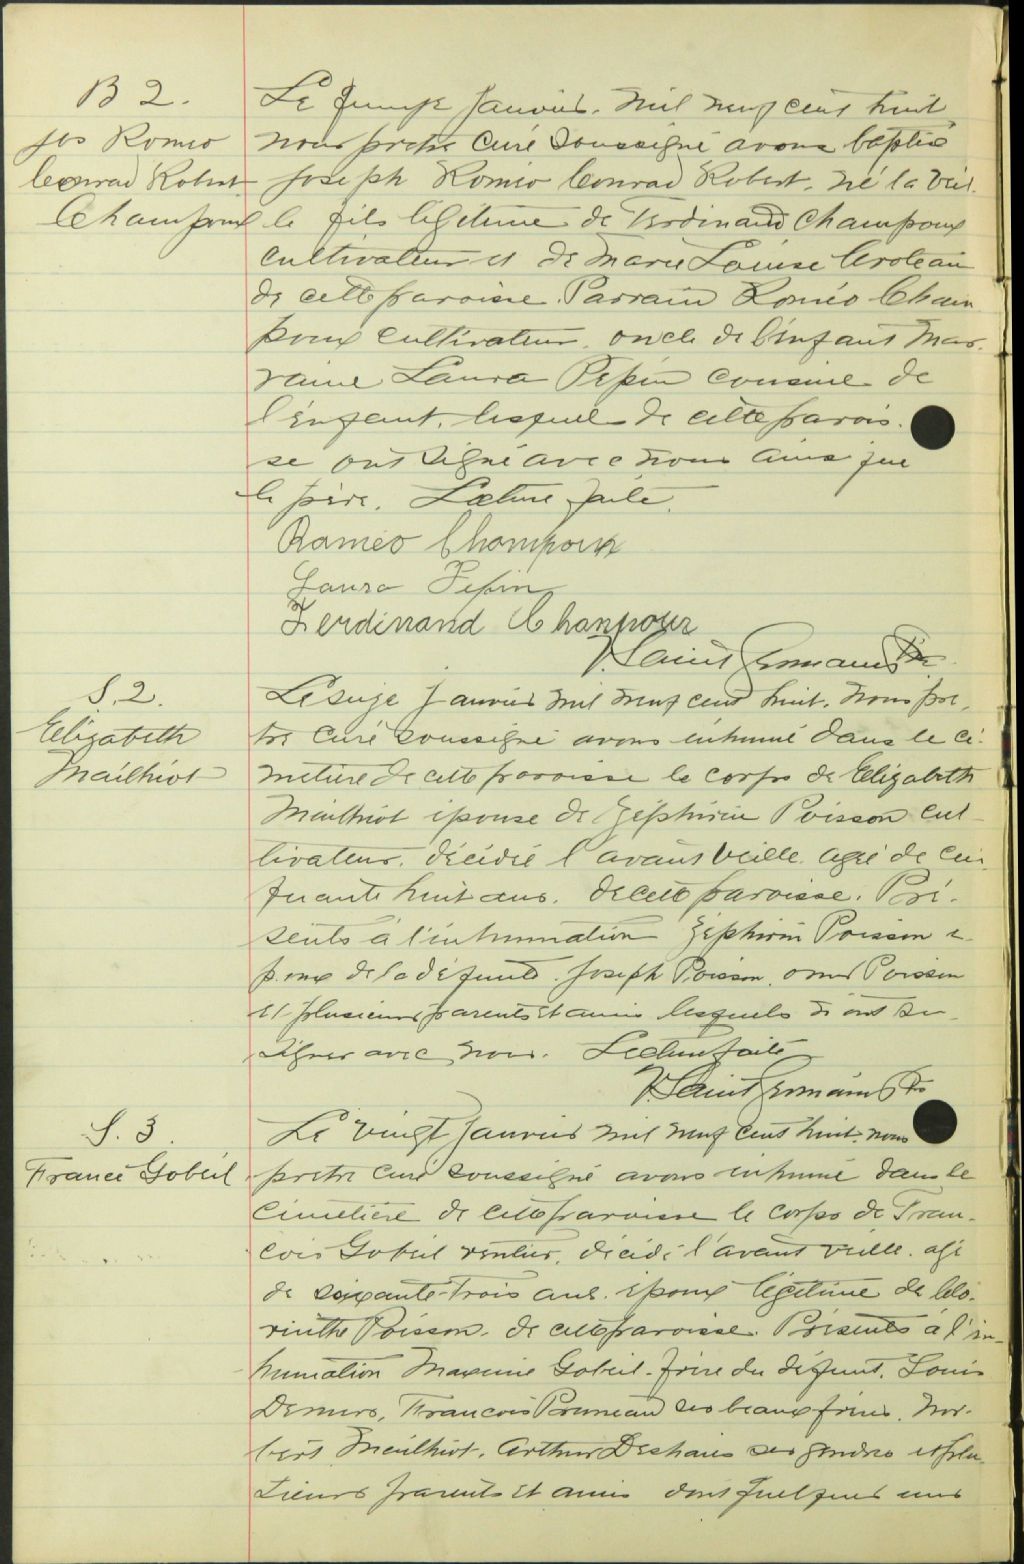 B 2.
Jos Romeo
Conrad Robert
Champoux
Le quinze Janvier. mil neuf cent huit
nous pretre curé soussigné avons baptisé
Joseph Romeo Conrad Robert. né la veil
le fils légitime de Ferdinand Champoux
cultivateur et de Marie Louise Croteau
de cette paroisse. Parrain Roméo Cham
poux cultivateur. oncle de l'enfant mar.
raine Laura Pepin cousine de
l'enfant. lesquels de cette parois.
se ont signé avec nous ainsi que
le père. Lecture faite.
Romeo Champoux
Laura Pepin
Ferdinand Champoux
V. Saint Germain Ptre
S. 2.
Elizabeth
Mailhiot
Le seize Janvier mil neuf cent huit. nous pre.
tre curé soussigné avons inhumé dans le ci.
metiere de cette paroisse le corps de Elizabeth
Mailhiot epouse de Zéphirin Poisson cul
tivateur. décédée l'avant veille. agée de cin
quante huit ans. de cette paroisse. Pré.
sents à l'inhumation Zéphirin Poisson e
poux de la défunte. Joseph Poisson. Poisson
et plusieurs parents et amis lesquels n'ont su
signer avec nous. Lecture faite
V. Saint Germain Ptre
S. 3.
France Gobeil
Le vingt Janvier mil neuf cent huit. nous
pretre curé soussigné avons inhumé dans le
cimetière de cette paroisse le corps de Fran.
cois Gobeil rentier. décédé l'avant veille. agé
de soixante-trois ans. époux légitime de Clo.
rinthe Poisson. de cette paroisse. Présents à l'in
humation Maxime Gobeil. frère du défunt. Louis
Demers, Francois Pruneau ses beaux frères. Nor.
bert Mailhiot. Arthur Deshaies ses gendres et plu
sieurs parents et amis dont quelques uns